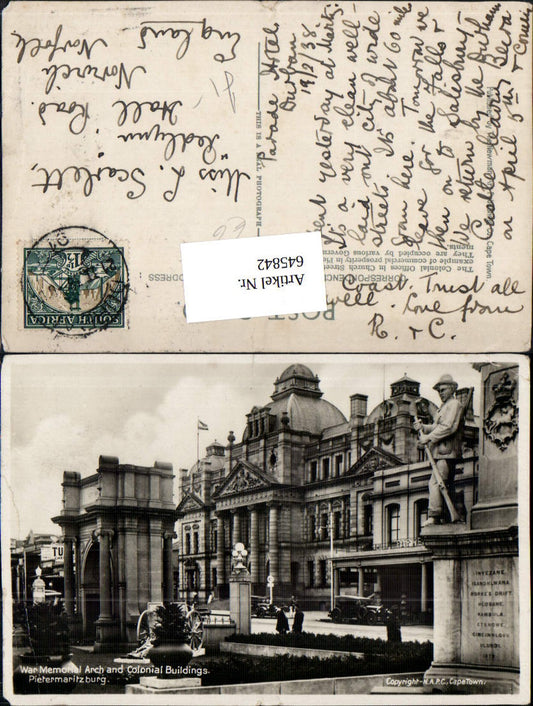 Parade Hotel
Durban
19/2/38
Went yesterday at Maritz.
It's a very clean well-
laid out city & wide
streets. It's about 60 mile
from here. Tomorrow we
leave for the Falls &
then on to Salisbury
We return by the Durham
Castle leaving Beira
on April 5th & coming
Coast. Trust all
well. Love from
R. & C.
Miss L. Scarlett,
Hall Road.
Norwich
Norfolk
England
THIS IS A REAL PHOTOGRAPH
CORRESPONDENCE
ADDRESS
The Colonial Offices in Church Street
example of commercial prosperity in
They are occupied by various Govern-
ments
Cape Town
POST
SOUTH AFRICA
Artikel Nr.
645842
TU
INYEZANE
ISANDHLWANA
RORKE'S DRIFT
HLOBANE
KAMBULA
ETSHOWE
GINGINHLOVU
ULUNDI
1879
War Memorial Arch and Colonial Buildings.
Pietermaritzburg.
Copyright-N.A.P.C., Cape Town.